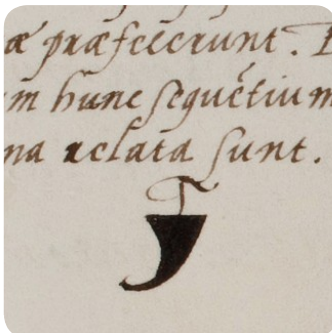 æ præfecerunt.
m hunc sequẽtium
na relata sunt.